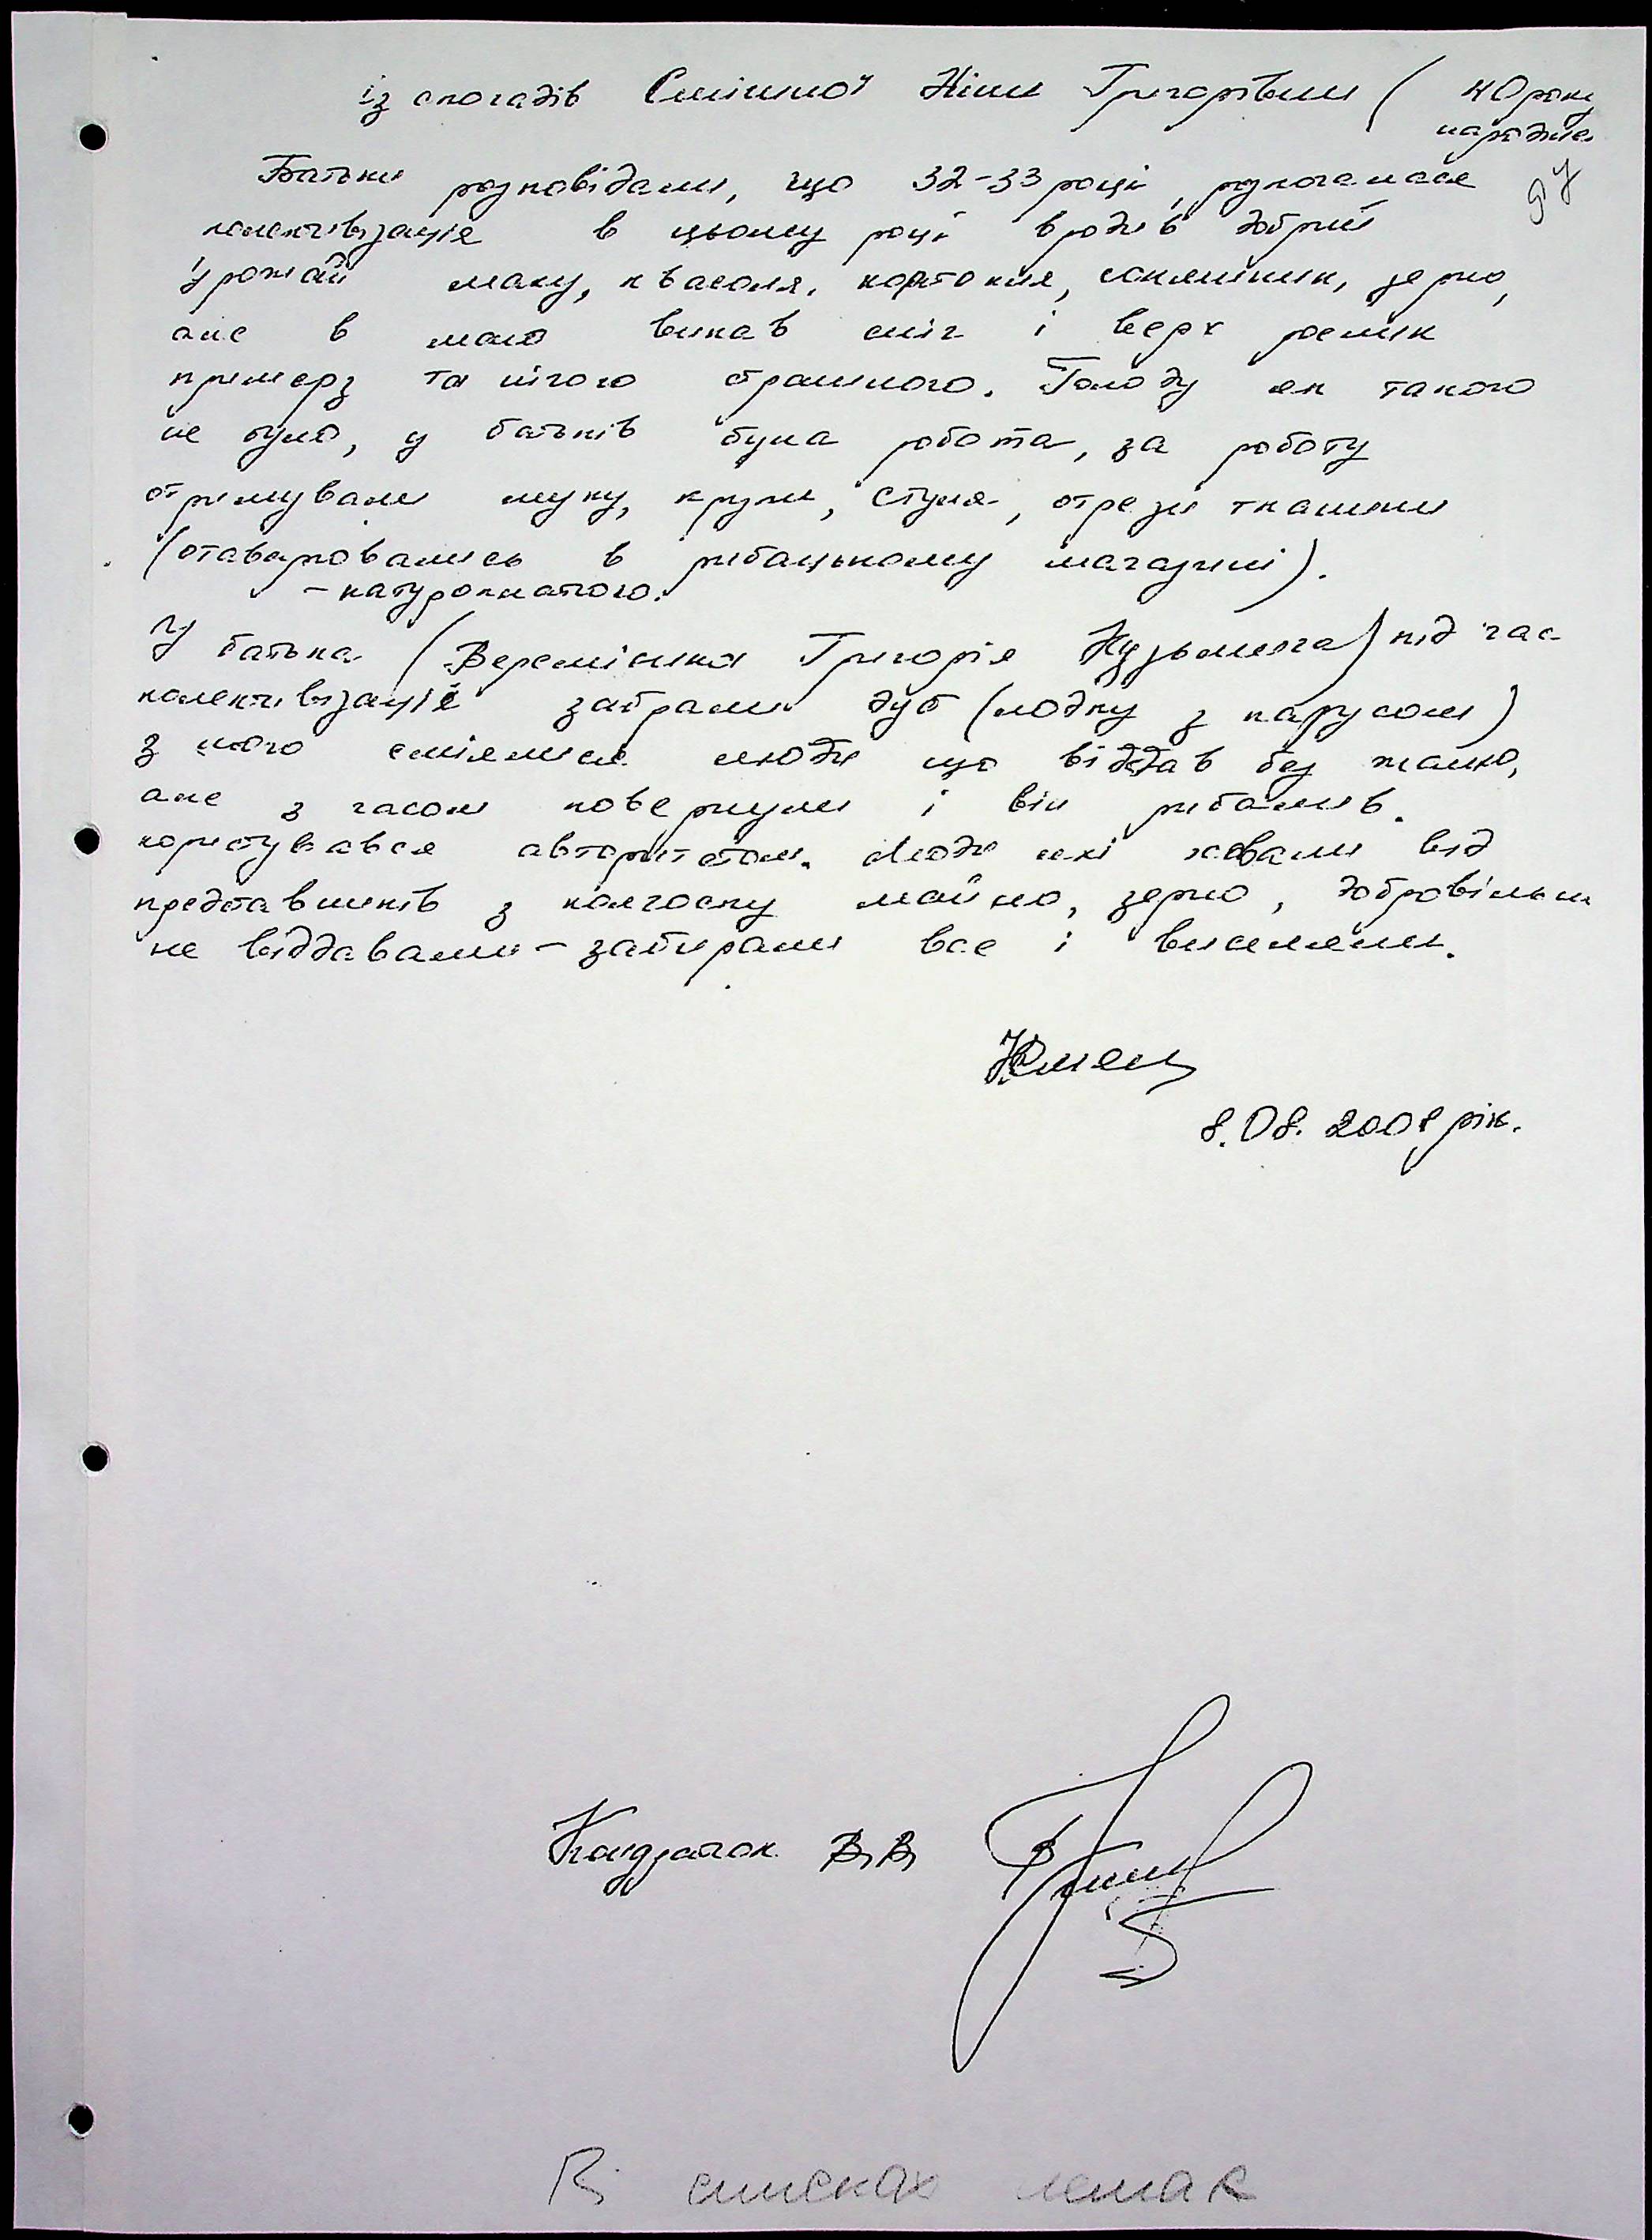 із спогадів Смішної Ніни Григорівни ( 40 року
народже
Батьки розповідали, що 32-33 роцi, розпочалася
колективізація в цьому році вродив добрий
урожай маку, квасоля, картопля, соняшник, зерно,
але в маю випав сніг і верх рослин
примерз та нічого страшного. Голоду як такого
не було, у батьків була робота, за роботу
отримували муку, крупи, стуля, отрези тканини
(отаваровались в рибацькому магазині).
– натуроплатою.
У батька (Веремієнка Григорія Кузьмича) під час
колективізації забрали дуб (лодку з парусом)
з його сміялися люди що віддав без жалю,
але з часом повернули і він рибалив.
користувався авторитетом. Люди які ховали від
представників з колгоспу майно, зерно, добровільно
не віддавали – забирали все і виселяли.
8.08.2008 рік.
В.В.
В списках немає